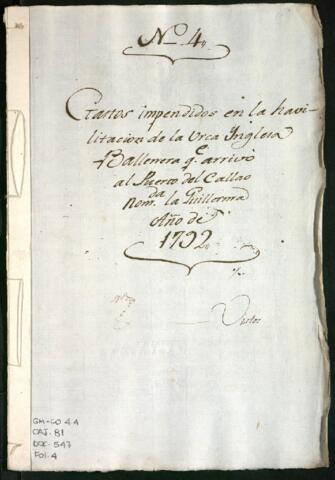 No. 4,,
Gastos impendidos en la havi-
litacion de la Urca Inglesa
Ballenera qe arrivó
al Puerto del Callao
nom.da la Guillerma
Año de
1792,,
Vistos
GM-CO 4.4
CAJ. 81
DOC. 547
FOL. 4